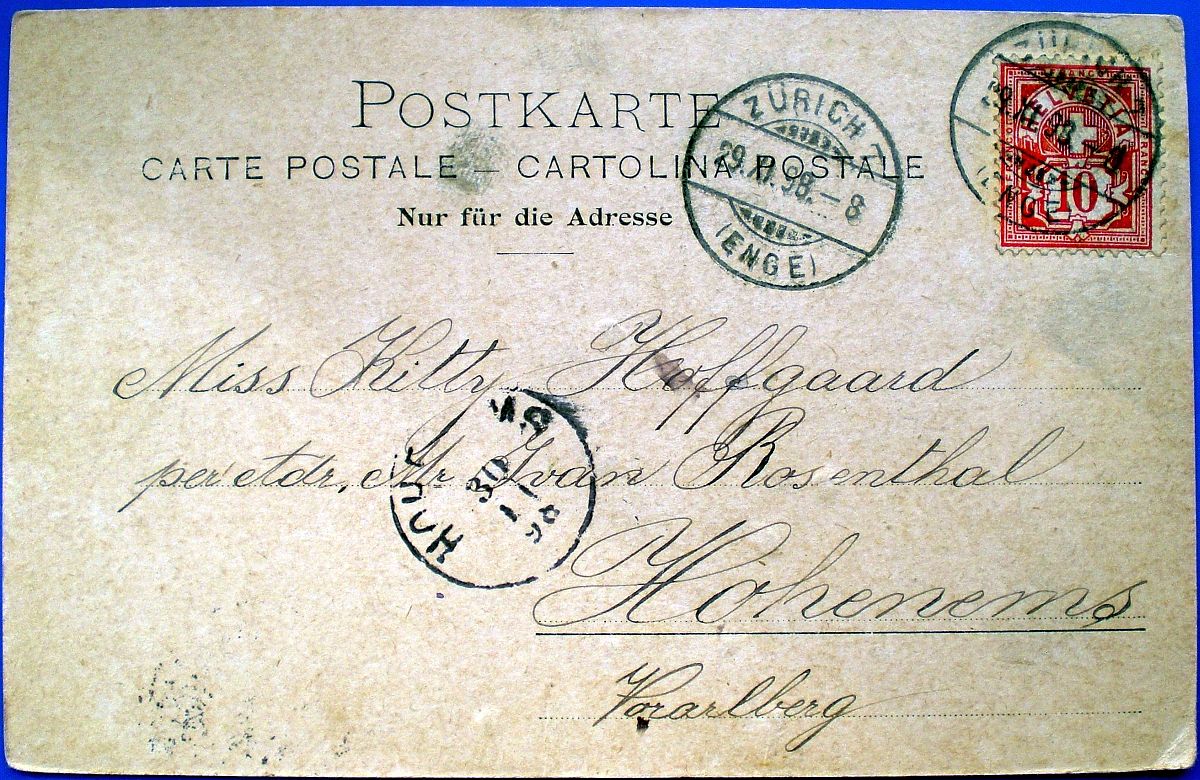 POSTKARTE
CARTE POSTALE – CARTOLINA POSTALE
Nur für die Adresse
ZÜRICH
29.XI.98.–8
(ENGE)
ZÜRICH
29.XI.98.
(ENGE)
HELVETIA
FRANCO
10
Miss Kitty Hoffgaard
per Adr. Mr Ivan Rosenthal
Hohenems
Vorarlberg
30
11
98